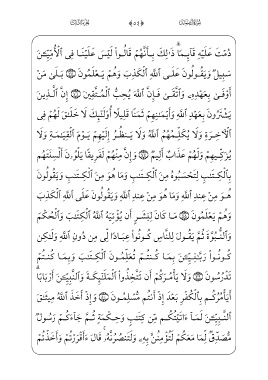 دُمْتَ عَلَيْهِ قَآئِمًا ۗ ذَٰلِكَ بِأَنَّهُمْ قَالُوا۟ لَيْسَ عَلَيْنَا فِى ٱلْأُمِّيِّـۧنَ
سَبِيلٌ وَيَقُولُونَ عَلَى ٱللَّهِ ٱلْكَذِبَ وَهُمْ يَعْلَمُونَ ۝ بَلَىٰ مَنْ
أَوْفَىٰ بِعَهْدِهِۦ وَٱتَّقَىٰ فَإِنَّ ٱللَّهَ يُحِبُّ ٱلْمُتَّقِينَ ۝ إِنَّ ٱلَّذِينَ
يَشْتَرُونَ بِعَهْدِ ٱللَّهِ وَأَيْمَـٰنِهِمْ ثَمَنًا قَلِيلًا أُو۟لَـٰٓئِكَ لَا خَلَـٰقَ لَهُمْ فِى
ٱلْـَٔاخِرَةِ وَلَا يُكَلِّمُهُمُ ٱللَّهُ وَلَا يَنظُرُ إِلَيْهِمْ يَوْمَ ٱلْقِيَـٰمَةِ وَلَا
يُزَكِّيهِمْ وَلَهُمْ عَذَابٌ أَلِيمٌ ۝ وَإِنَّ مِنْهُمْ لَفَرِيقًا يَلْوُۥنَ أَلْسِنَتَهُم
بِٱلْكِتَـٰبِ لِتَحْسَبُوهُ مِنَ ٱلْكِتَـٰبِ وَمَا هُوَ مِنَ ٱلْكِتَـٰبِ وَيَقُولُونَ
هُوَ مِنْ عِندِ ٱللَّهِ وَمَا هُوَ مِنْ عِندِ ٱللَّهِ وَيَقُولُونَ عَلَى ٱللَّهِ ٱلْكَذِبَ
وَهُمْ يَعْلَمُونَ ۝ مَا كَانَ لِبَشَرٍ أَن يُؤْتِيَهُ ٱللَّهُ ٱلْكِتَـٰبَ وَٱلْحُكْمَ
وَٱلنُّبُوَّةَ ثُمَّ يَقُولَ لِلنَّاسِ كُونُوا۟ عِبَادًا لِّى مِن دُونِ ٱللَّهِ وَلَـٰكِن
كُونُوا۟ رَبَّـٰنِيِّـۧنَ بِمَا كُنتُمْ تُعَلِّمُونَ ٱلْكِتَـٰبَ وَبِمَا كُنتُمْ
تَدْرُسُونَ ۝ وَلَا يَأْمُرَكُمْ أَن تَتَّخِذُوا۟ ٱلْمَلَـٰٓئِكَةَ وَٱلنَّبِيِّـۧنَ أَرْبَابًا ۗ
أَيَأْمُرُكُم بِٱلْكُفْرِ بَعْدَ إِذْ أَنتُم مُّسْلِمُونَ ۝ وَإِذْ أَخَذَ ٱللَّهُ مِيثَـٰقَ
ٱلنَّبِيِّـۧنَ لَمَآ ءَاتَيْتُكُم مِّن كِتَـٰبٍ وَحِكْمَةٍ ثُمَّ جَآءَكُمْ رَسُولٌ
مُّصَدِّقٌ لِّمَا مَعَكُمْ لَتُؤْمِنُنَّ بِهِۦ وَلَتَنصُرُنَّهُۥ ۚ قَالَ ءَأَقْرَرْتُمْ وَأَخَذْتُمْ